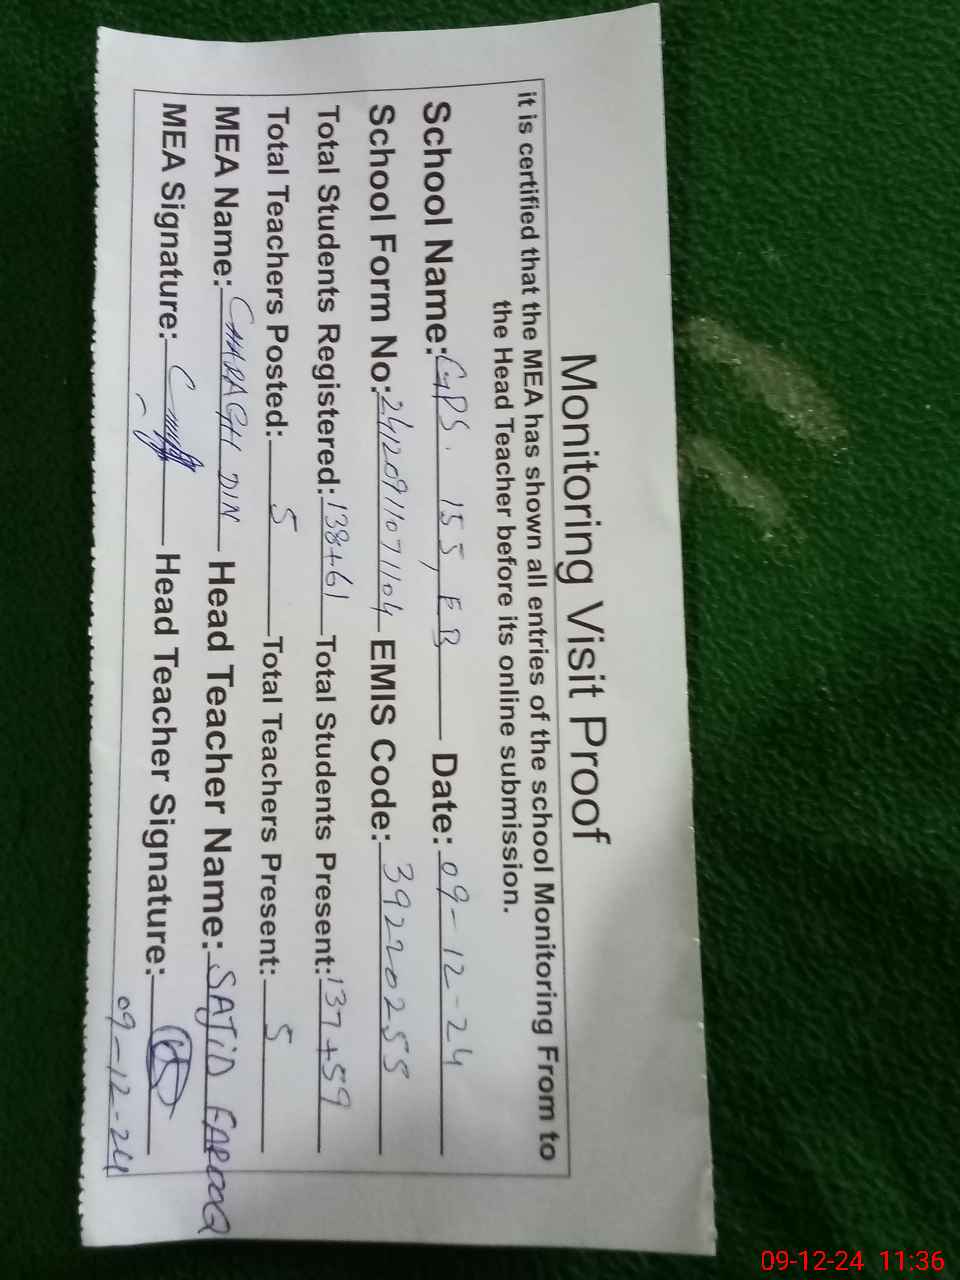 Monitoring Visit Proof
it is certified that the MEA has shown all entries of the school Monitoring From to
the Head Teacher before its online submission.
School Name: GPS. 155, EB Date: 09-12-24
School Form No: 24120911071104 EMIS Code: 39220255
Total Students Registered: 138+61 Total Students Present: 137+59
Total Teachers Posted: 5 Total Teachers Present: 5
MEA Name: CHARAGH DIN Head Teacher Name: SAJiD FAROOQ
MEA Signature: Head Teacher Signature:
09-12-24
09-12-24 11:36